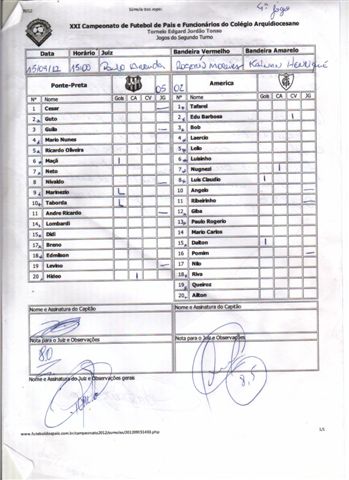 Súmula dos jogos
4º Jogo
XXI Campeonato de Futebol de Pais e Funcionários do Colégio Arquidiocesano
Torneio Edgard Jordão Tonso
Jogos do Segundo Turno
Data Horário Juiz Bandeira Vermelho Bandeira Amarelo
15/09/12 15:00
Ponte-Preta 05 02 America
Nº Nome Gols CA CV JG Nº Nome Gols CA CV JG
1 Cesar 1 Tafarel
2 Guto 2 Edu Barbosa
3 Guila 3 Bob
4 Mario Nunes 4 Laercio
5 Ricardo Oliveira 5 Lello
6 Maçã 6 Luisinho
7 Neto 7 Nugnezi
8 Nivaldo 8 Luis Claudio
9 Marinezio 10 Angelo
10 Taborda 11 Ribeirinho
11 Andre Ricardo 12 Giba
14 Lombardi 13 Paulo Rogerio
15 Didi 14 Mario Carlos
17 Breno 15 Dalton
18 Edmilson 16 Pomim
19 Levino 17 Nilo
20 Hideo 18 Riva
19 Queiroz
20 Ailton
Nome e Assinatura do Captão Nome e Assinatura do Captão
Nota para o Juiz e Observações Nota para o Juiz e Observações
80
8,5
Nome e Assinatura do Juiz e Observações gerais
1/1